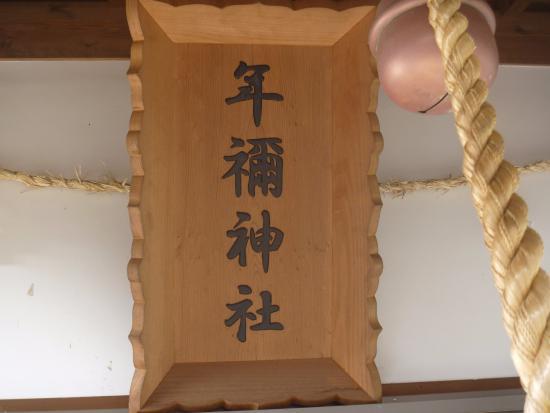 年禰神社